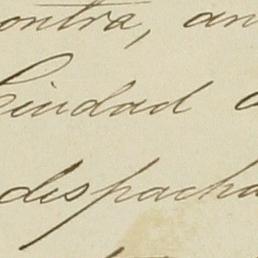 ontra, an
Ciudad
despacha